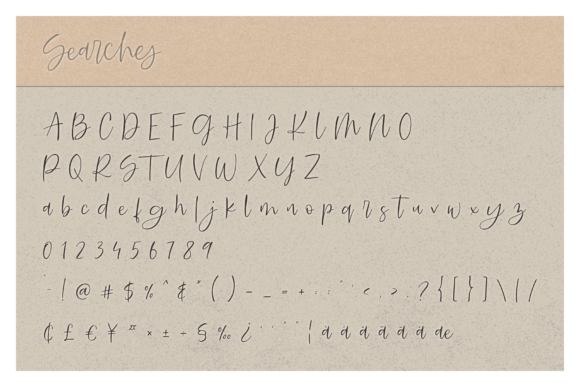 Searches
A B C D E F G H I J K L M N O
P Q R S T U V W X Y Z
a b c d e f g h i j k l m n o p q r s t u v w x y z
0 1 2 3 4 5 6 7 8 9
! @ # $ % ^ & * ( ) - _ = + : ; < , > . ? { [ } ] \ | /
¢ £ € ¥ ¤ × ± ÷ § ‰ ¿ ¦ à á â ã ä å æ